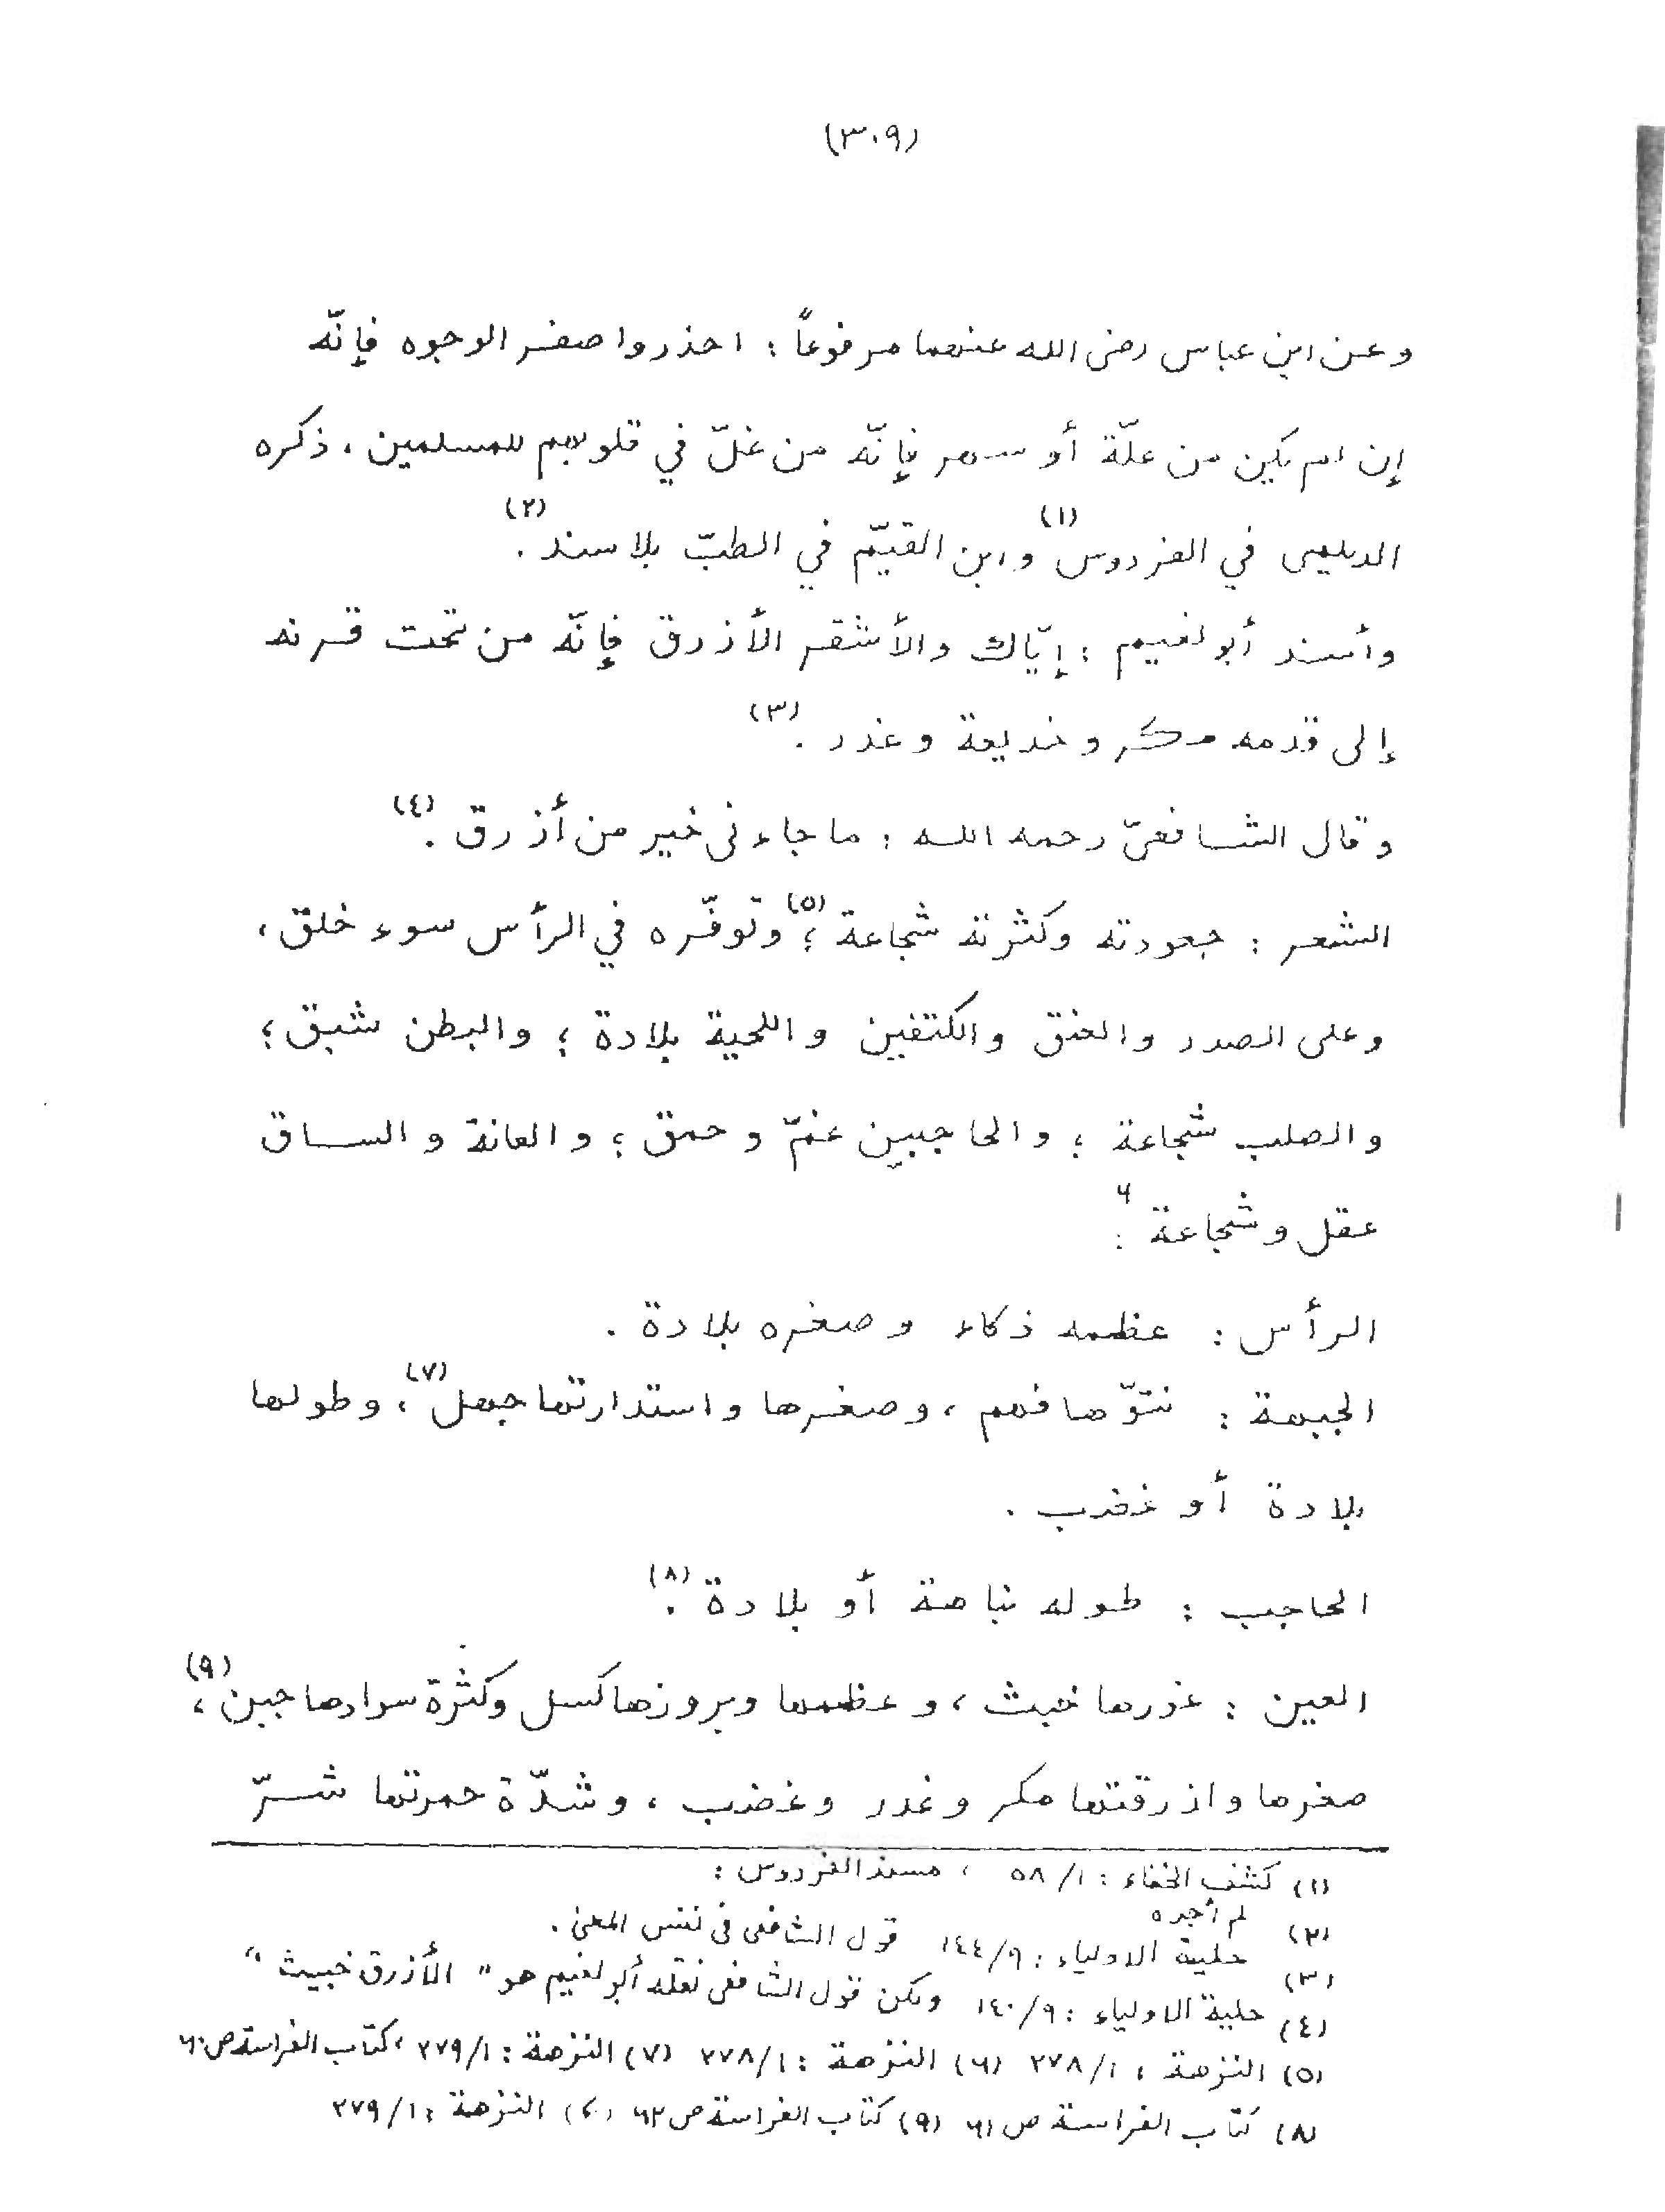 (٣٠٩)
وعن ابن عباس رضى الله عنهما مرفوعاً : احذروا صفر الوجوه فإنّه
إن لم يكن من علّة أو سهر فإنّه من غلّ في قلوبهم للمسلمين ، ذكره
الديلمى في الفردوس (١) وابن القيّم في الطبّ بلا سند . (٢)
وأسند أبو نعيم : إيّاك والأشقر الأزرق فإنّه من تحت قرنه
إلى قدمه مكر وخديعة وغدر . (٣)
وقال الشافعىّ رحمه الله : ما جاءنى خير من أزرق . (٤)
الشعر : جعودته وكثرته شجاعة (٥) ؛ وتوفّره في الرأس سوء خلق ،
وعلى الصدر والعنق والكتفين واللحية بلادة ؛ والبطن شبق ؛
والصلب شجاعة ؛ والحاجبين غمّ وحمق ؛ والعانة والساق
عقل وشجاعة ٦ :
الرأس : عظمه ذكاء وصغره بلادة .
الجبهة : نتوّها فهم ، وصغرها واستدارتها جهل (٧) ، وطولها
بلادة أو غضب .
الحاجب : طوله نباهة أو بلادة (٨) .
العين : غورها خبث ، وعظمها وبروزها كسل وكثرة سوادها جبن (٩) ،
صغرها وازرقتها مكر وغدر وغضب ، وشدّة حمرتها شرّ
(١) كشف الخفاء : ١/ ٥٨ ، مسند الفردوس :
(٢) لم أجده
(٣) حلية الاولياء : ٩/ ١٤٤ قول الشافعى فى نفس المعنى .
(٤) حلية الاولياء : ٩/ ١٤٠ ولكن قول الشافعى نقله أبو نعيم هو " الأزرق خبيث "
(٥) النزهة : ١/ ٢٧٨ (٦) النزهة : ١/ ٢٧٨ (٧) النزهة : ١/ ٢٧٩ ، كتاب الفراسة ص ٦٠
(٨) كتاب الفراسة ص ٦١ (٩) كتاب الفراسة ص ٦٢ النزهة : ١/ ٢٧٩